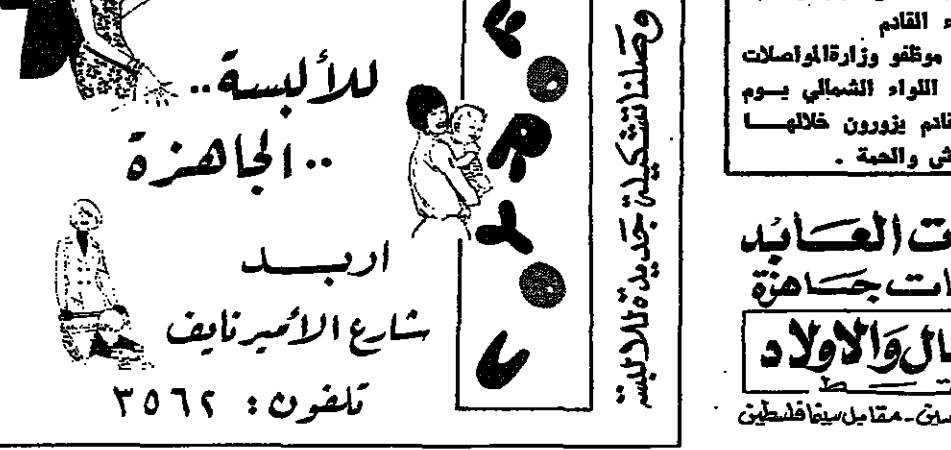 للألبسة..
..الجاهزة
اربـــد
شارع الأمير نايف
تلفون: ٣٥٦٢
وصلنا تشكيلة جديدة للألبسة
ء القادم
موظفو وزارة المواصلات
اللواء الشمالي يـوم
قادم يزورون خلالهـــا
ش والحمة .
ت العـــابد
ات جـــاهزة
ـال والاولاد
ـسين - مقابل سينما فلسطين